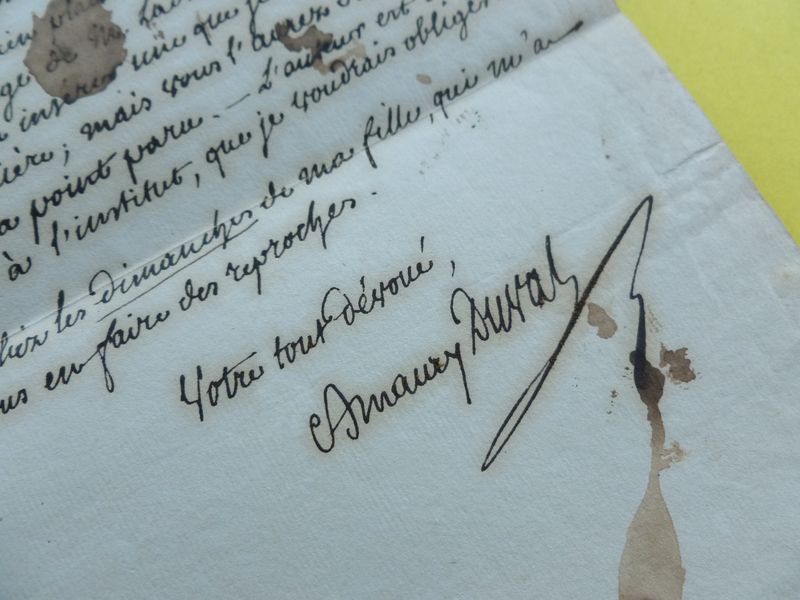 ge de M. La
insérer une que je
ière; mais vous l'aurez
a point paru. — L'auteur est
à l'institut, que je voudrais obliger
les dimanches de ma fille, qui m'a
us en faire des reproches.
Votre tout dévoué,
Amaury Duval